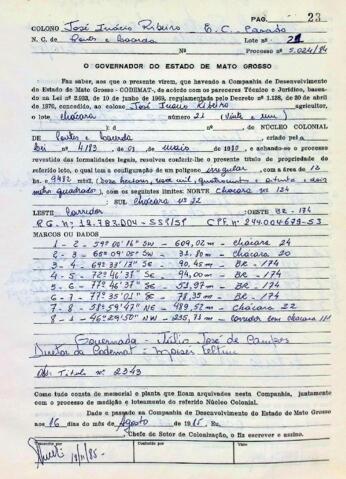 PAG. 23
COLONO José Inácio Ribeiro E. C. Casado
N. C. de Pontes e Lacerda Lote n.° 21
N° Processo n° 5.024/84
O GOVERNADOR DO ESTADO DE MATO GROSSO
Faz saber, aos que o presente virem, que havendo a Companhia de Desenvolvimento
do Estado de Mato Grosso - CODEMAT-, de acórdo com os pareceres Técnico e Jurídico, basea-
do na Lei n° 2.923, de 10 de junho de 1969, regulamentada pelo Decreto n° 1.138, de 30 de abril
de 1970, concedido, ao colono José Inácio Ribeiro agricultor,
o lote chácara número 21 (Vinte e um)
d n° , do NÚCLEO COLONIAL
de Pontes e Lacerda criado pela
Lei n° 4193, de 01, de maio de 1980 e achando-se o processo
revestido das formalidades legais, resolveu conferir-lhe o presente título de propriedade do
referido lote, o qual tem a configuração de um polígono irregular, com a área de 12
ha. 9482 m2.
metro quadrado), com os seguintes limites: NORTE chácara nº 124
SUL chácara nº 22
LESTE Corredor OESTE BR - 174
R.G. nº 12.783.004 - SSP/SP CPF. nº 244.004.679-53
MARCOS OU DADOS
1 - 2 - 59° 06' 16" SW - 609,02 m - chácara 24
2 - 3 - 65° 09' 05" SW - m - chácara 20
3 - 4 - 69° 33' 13" SE - 90,46 m - BR - 174
4 - 5 - 72° 46' 37" SE - 94,00 m - BR - 174
5 - 6 - 77° 46' 37" SE - 53,97 m - BR - 174
6 - 7 - 77° 35' 01" SE - 78,35 m - BR - 174
7 - 8 - 59' 47" NE - 489,52 m - chácara 22
8 - 1 - 46° 29' 50" NW - 235,71 m - Corredor com chácara
Governador - Júlio José de Campos
Diretor da Codemat - Moises Feltrin
Obs: Titulo nº 2349
Como tudo consta de memorial e planta que ficam arquivados nesta Companhia, juntamente
com o processo de medição e loteamento do referido Núcleo Colonial.
Dado e passado na Companhia de Desenvolvimento do Estado de Mato Grosso
aos 16 dias do mês de Agosto de 1985. Eu,
, Chefe de Setor de Colonização, o fiz escrever e assino.
Transcrito por Conferido Visto